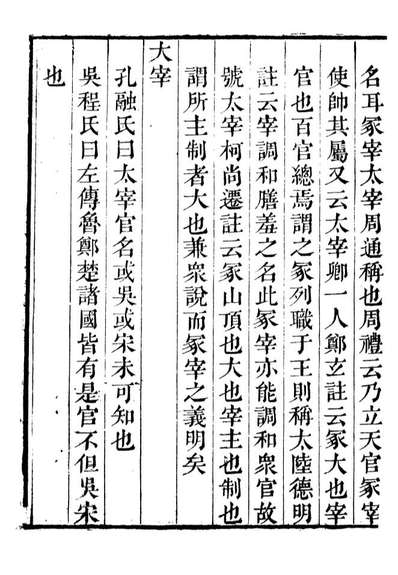 名耳冢宰太宰周通稱也周禮云乃立天官冢宰
使帥其屬又云太宰卿一人鄭玄註云冢大也宰
官也百官總焉謂之冢列職于王則稱太陸德明
註云宰調和膳羞之名此冢宰亦能調和衆官故
號太宰柯尚遷註云冢山頂也大也宰主也制也
謂所主制者大也兼衆說而冢宰之義明矣
大宰
孔融氏曰太宰官名或吳或宋未可知也
吳程氏曰左傳魯鄭楚諸國皆有是官不但吳宋
也